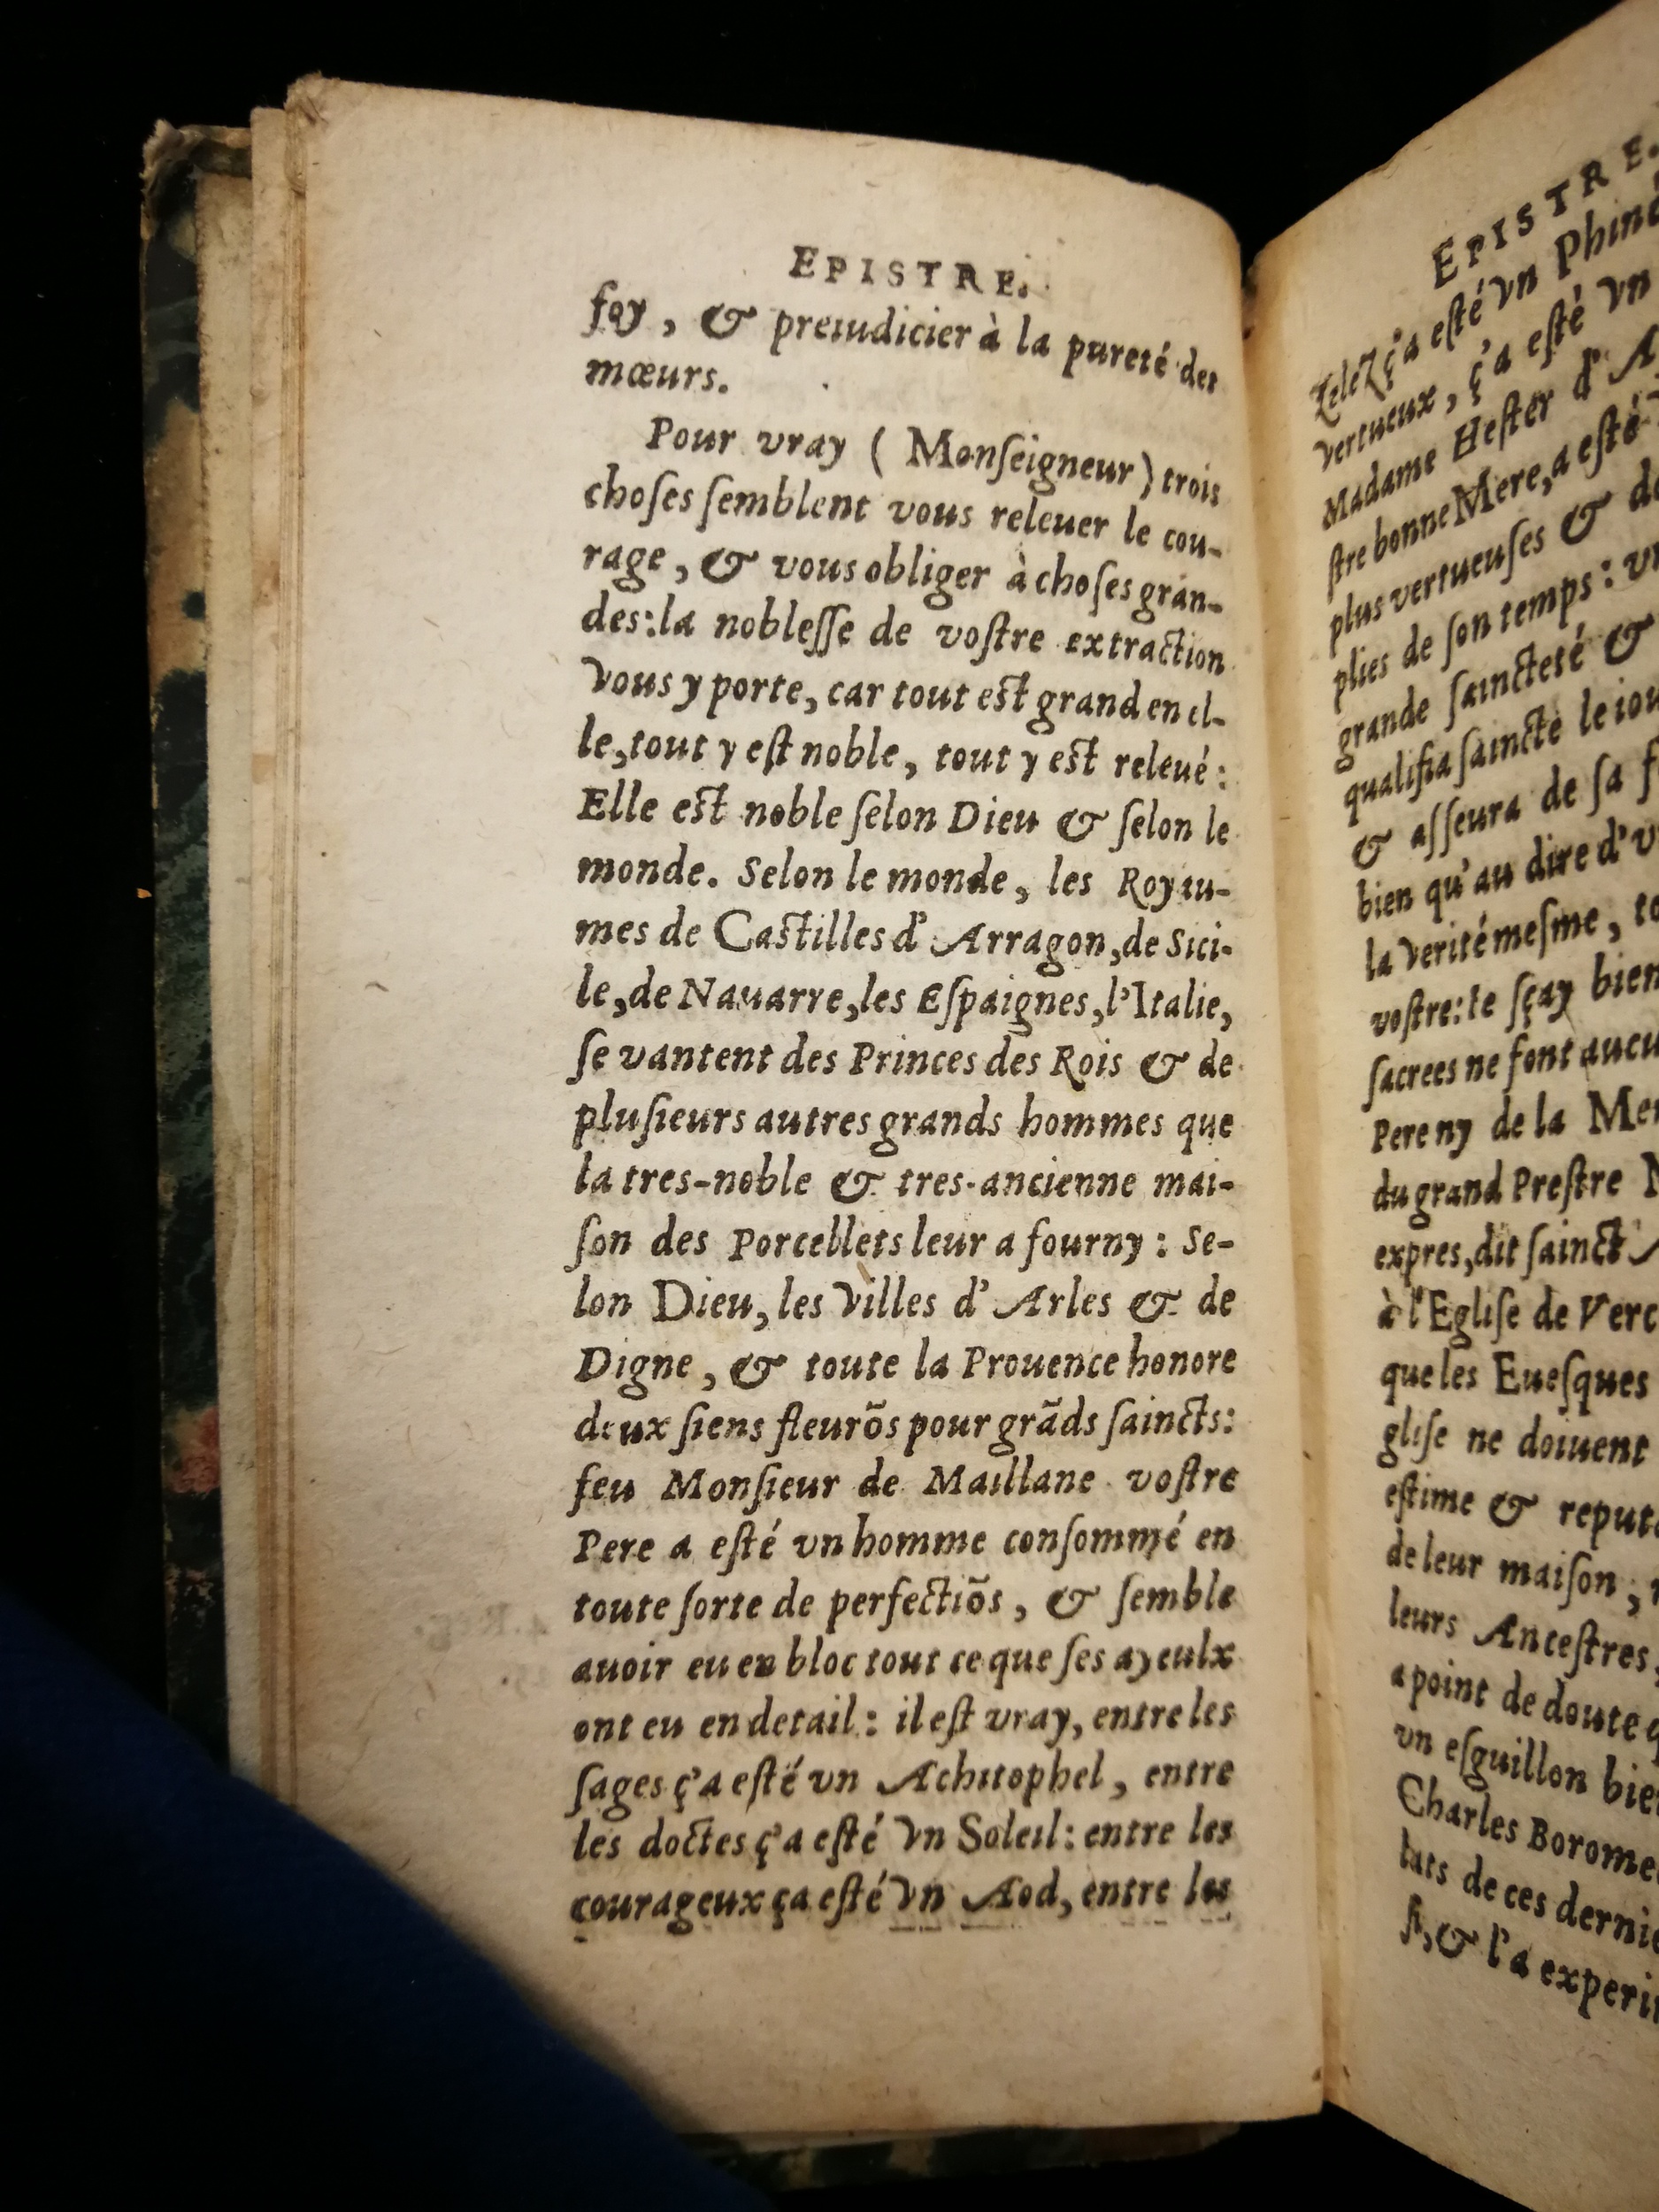 EPISTRE.
foy, & preiudicier à la pureté des
mœurs.
Pour vray ( Monſeigneur ) trois
choſes ſemblent vous releuer le cou-
rage, & vous obliger à choſes gran-
des: la nobleſſe de voſtre extraction
vous y porte, car tout eſt grand en el-
le, tout y eſt noble, tout y eſt releué:
Elle eſt noble ſelon Dieu & ſelon le
monde. Selon le monde, les Royau-
mes de Caſtilles d'Arragon, de Sici-
le, de Nauarre, les Eſpaignes, l'Italie,
ſe vantent des Princes des Rois & de
pluſieurs autres grands hommes que
la tres-noble & tres-ancienne mai-
ſon des Porcellets leur a fourny: Se-
lon Dieu, les Villes d'Arles & de
Digne, & toute la Prouence honore
deux ſiens fleurõs pour grãds ſaincts:
feu Monſieur de Maillane voſtre
Pere a eſté vn homme conſommé en
toute ſorte de perfectiõs, & ſemble
auoir eu en bloc tout ce que ſes ayeulx
ont eu en detail: il eſt vray, entre les
ſages ç'a eſté vn Achitophel, entre
les doctes ç'a eſté vn Soleil: entre les
courageux ça eſté vn Aod, entre les
EPISTRE.
zelez ç'a eſté vn
vertueux, ç'a eſté vn
Madame Heſter d'
ſtre bonne Mere, a eſté
plus vertueuſes &
plies de ſon temps:
grande ſaincteté &
qualifia ſaincte le
& aſſeura de ſa
bien qu'au dire
la verité meſme,
voſtre: Ie ſçay bien
ſacrees ne font
Pere ny de la
du grand Preſtre
expres, dit ſainct
à l'Egliſe de
que les Eueſques
gliſe ne doiuent
eſtime &
de leur maiſon,
leurs Anceſtres,
a point de doute
vn eſguillon
Charles
lats de ces
ſi, & l'a